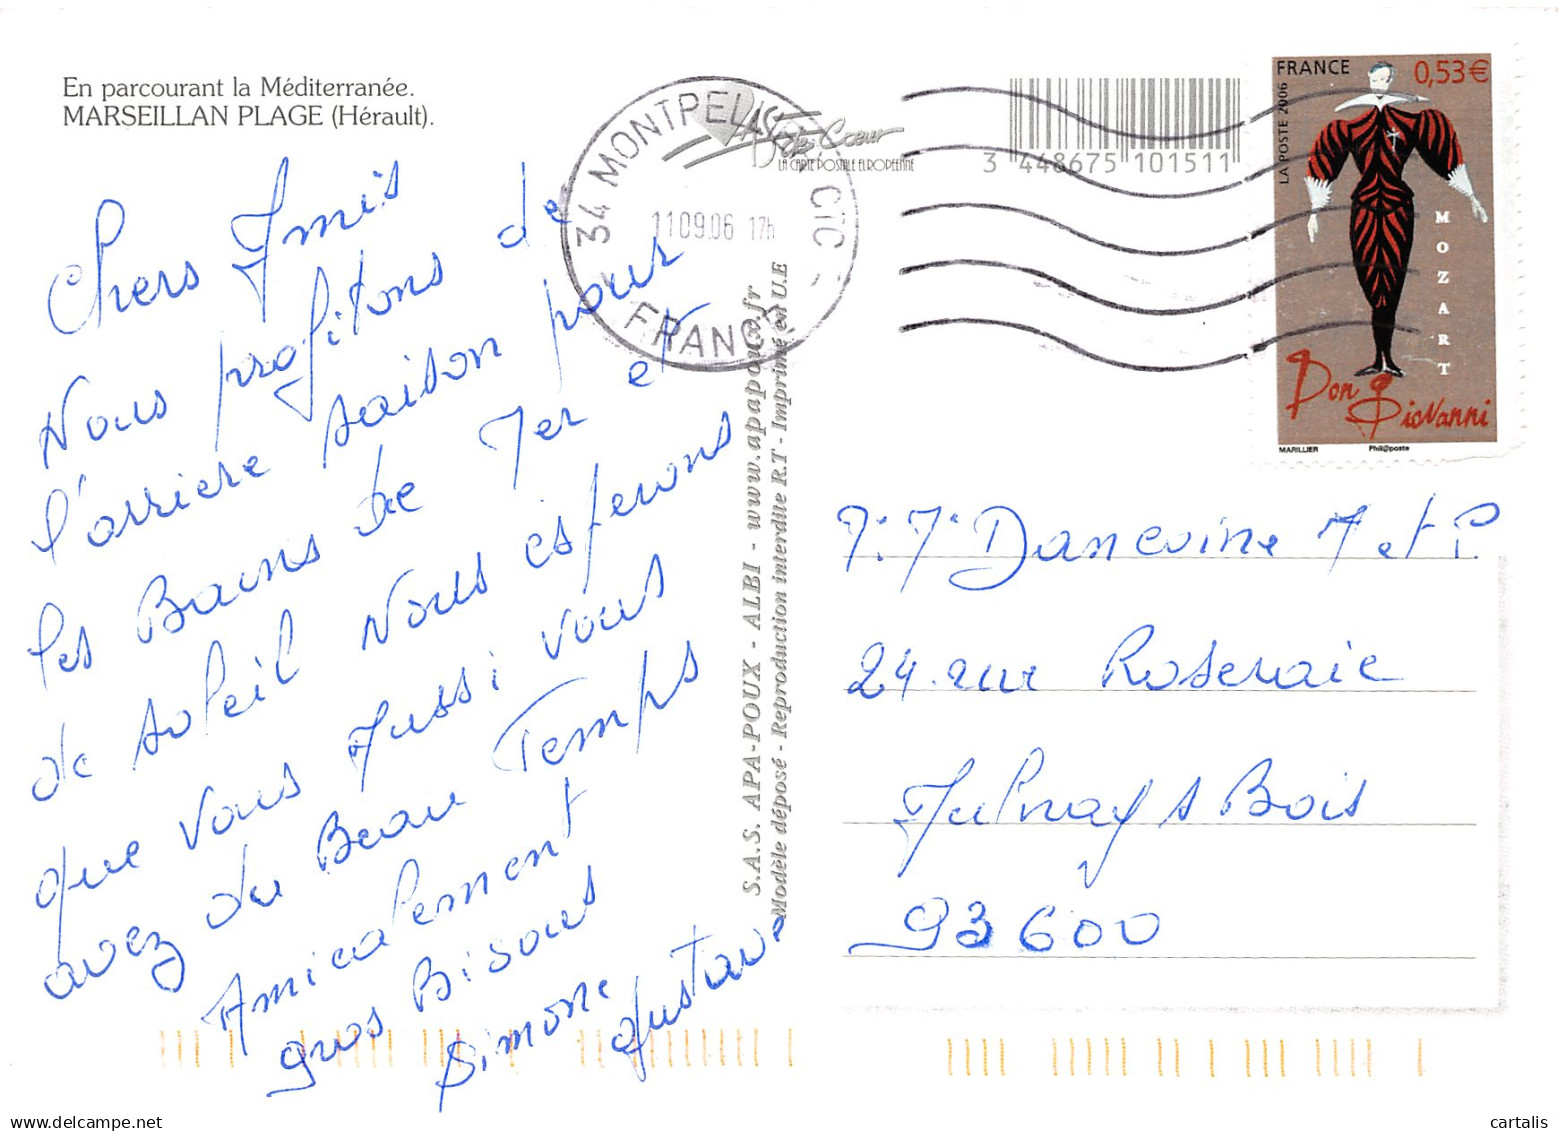 En parcourant la Méditerranée.
MARSEILLAN PLAGE (Hérault).
Chers Amis
Nous profitons de
l'arriere saison pour
les Bains de Mer et
de soleil Nous esperons
que vous Aussi vous
avez du Beau Temps
Amicalement
gros Bisous
Simone
Gustave
34 MONTPELLIER CTC
11 09.06 17h
FRANCE
As de Cœur
LA CARTE POSTALE EUROPÉENNE
3 448675 101511
S.A.S. APA-POUX - ALBI - www.apapoux.fr
Modèle déposé - Reproduction interdite R.T - Imprimé en U.E
FRANCE 0,53€
LA POSTE 2006
MOZART
Don Giovanni
MARILLIER Phil@poste
M. et P.
24 rue Roseraie
Aulnay s Bois
93600
cartalis